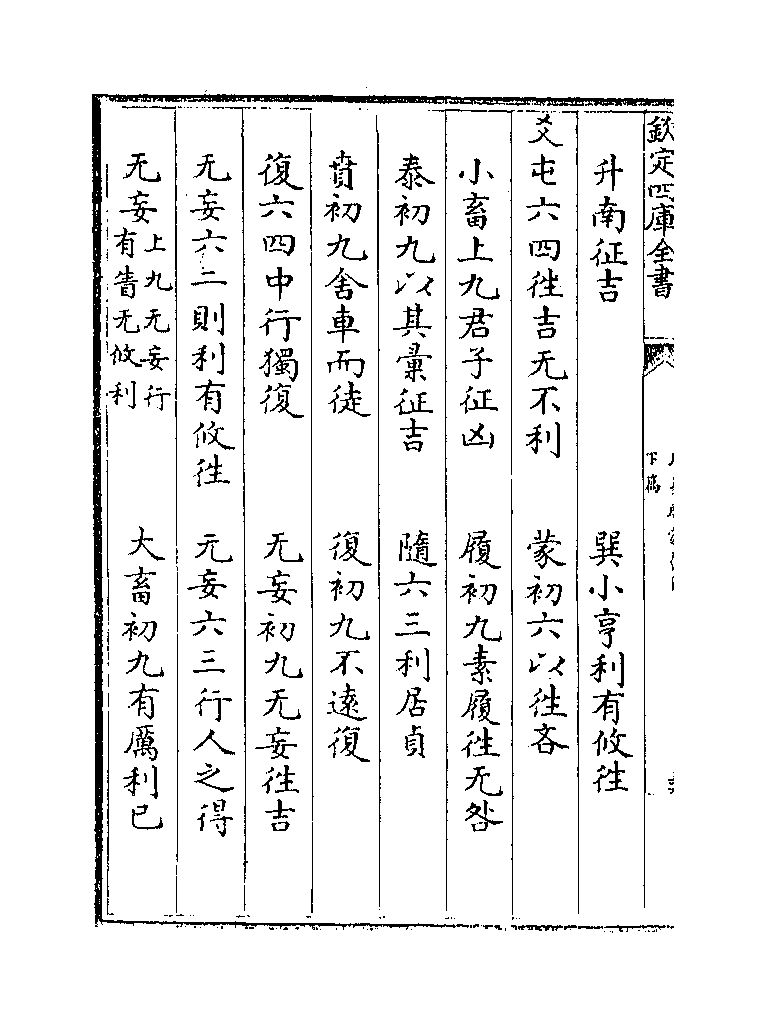 欽定四庫全書
下篇
升南征吉 巽小亨利有攸往
爻屯六四徃吉无不利 蒙初六以徃吝
小畜上九君子征凶 履初九素履徃无咎
泰初九以其彚征吉 隨六三利居貞
賁初九舍車而徒 復初九不遠復
復六四中行獨復 无妄初九无妄徃吉
无妄六二則利有攸徃 无妄六三行人之得
无妄上九无妄行有眚无攸利 大畜初九有厲利已